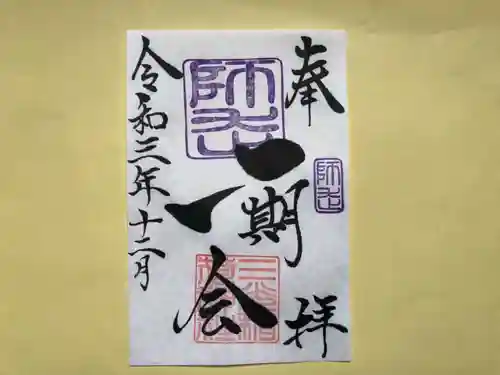 奉拝
一期
一会
令和三年十二月
師走
師走